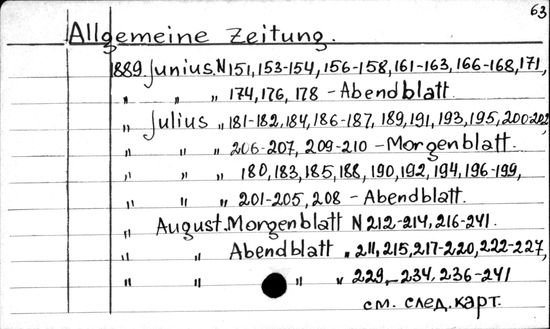 63
Allgemeine Zeitung.
1889 Junius. N 151, 153-154, 156-158, 161-163, 166-168, 171,
" " " 174, 176, 178 - Abendblatt.
" Julius " 181-182, 184, 186-187, 189, 191, 193, 195, 200-202
" " " 206-207, 209-210 - Morgenblatt.
" " " 180, 183, 185, 188, 190, 192, 194, 196-199,
" " " 201-205, 208 - Abendblatt.
" August. Morgenblatt N 212-214, 216-241.
" " Abendblatt " 211, 215, 217-220, 222-227,
" " " " 229-234, 236-241
см. след. карт.